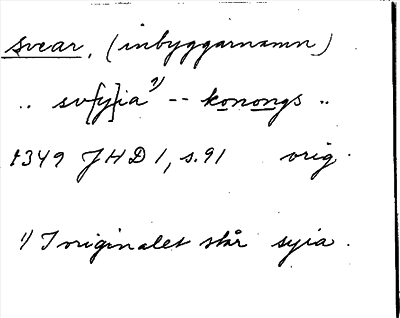 svear, (inbyggarnamn)
.. sv[y]ia 1) -- konongs ..
1349 JHD 1, s. 91 orig.
1) I originalet står syia.